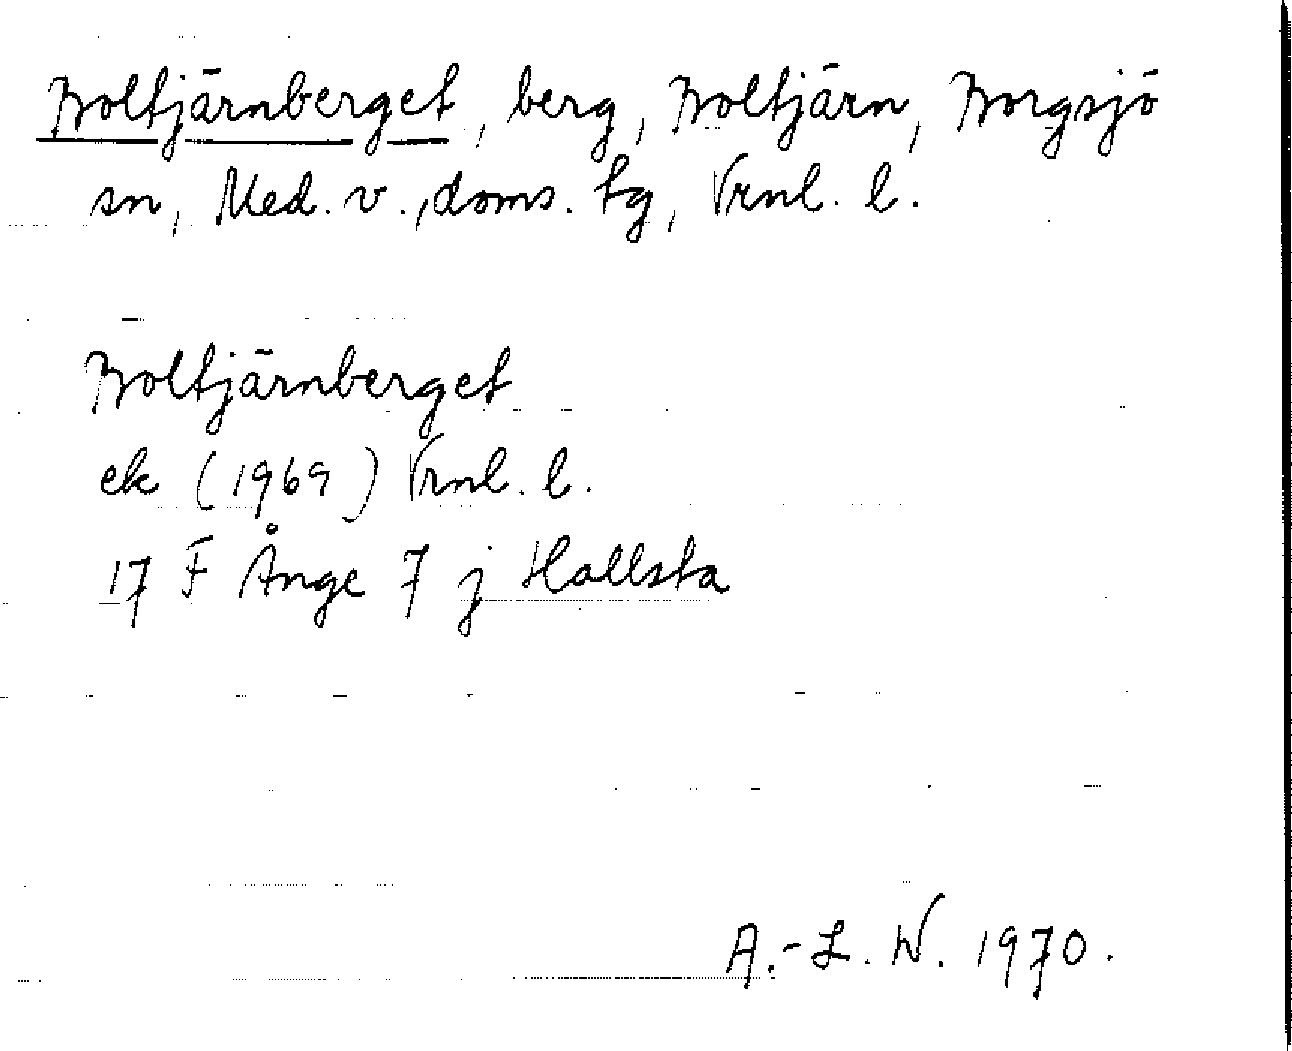 Boltjärnberget, berg, Boltjärn, Borgsjö
sn, Med. v., doms. tg, Vrnl. l.
Boltjärnberget
ek (1969) Vrnl. l.
17 F Ånge 7 j Hallsta
A.-L. W. 1970.